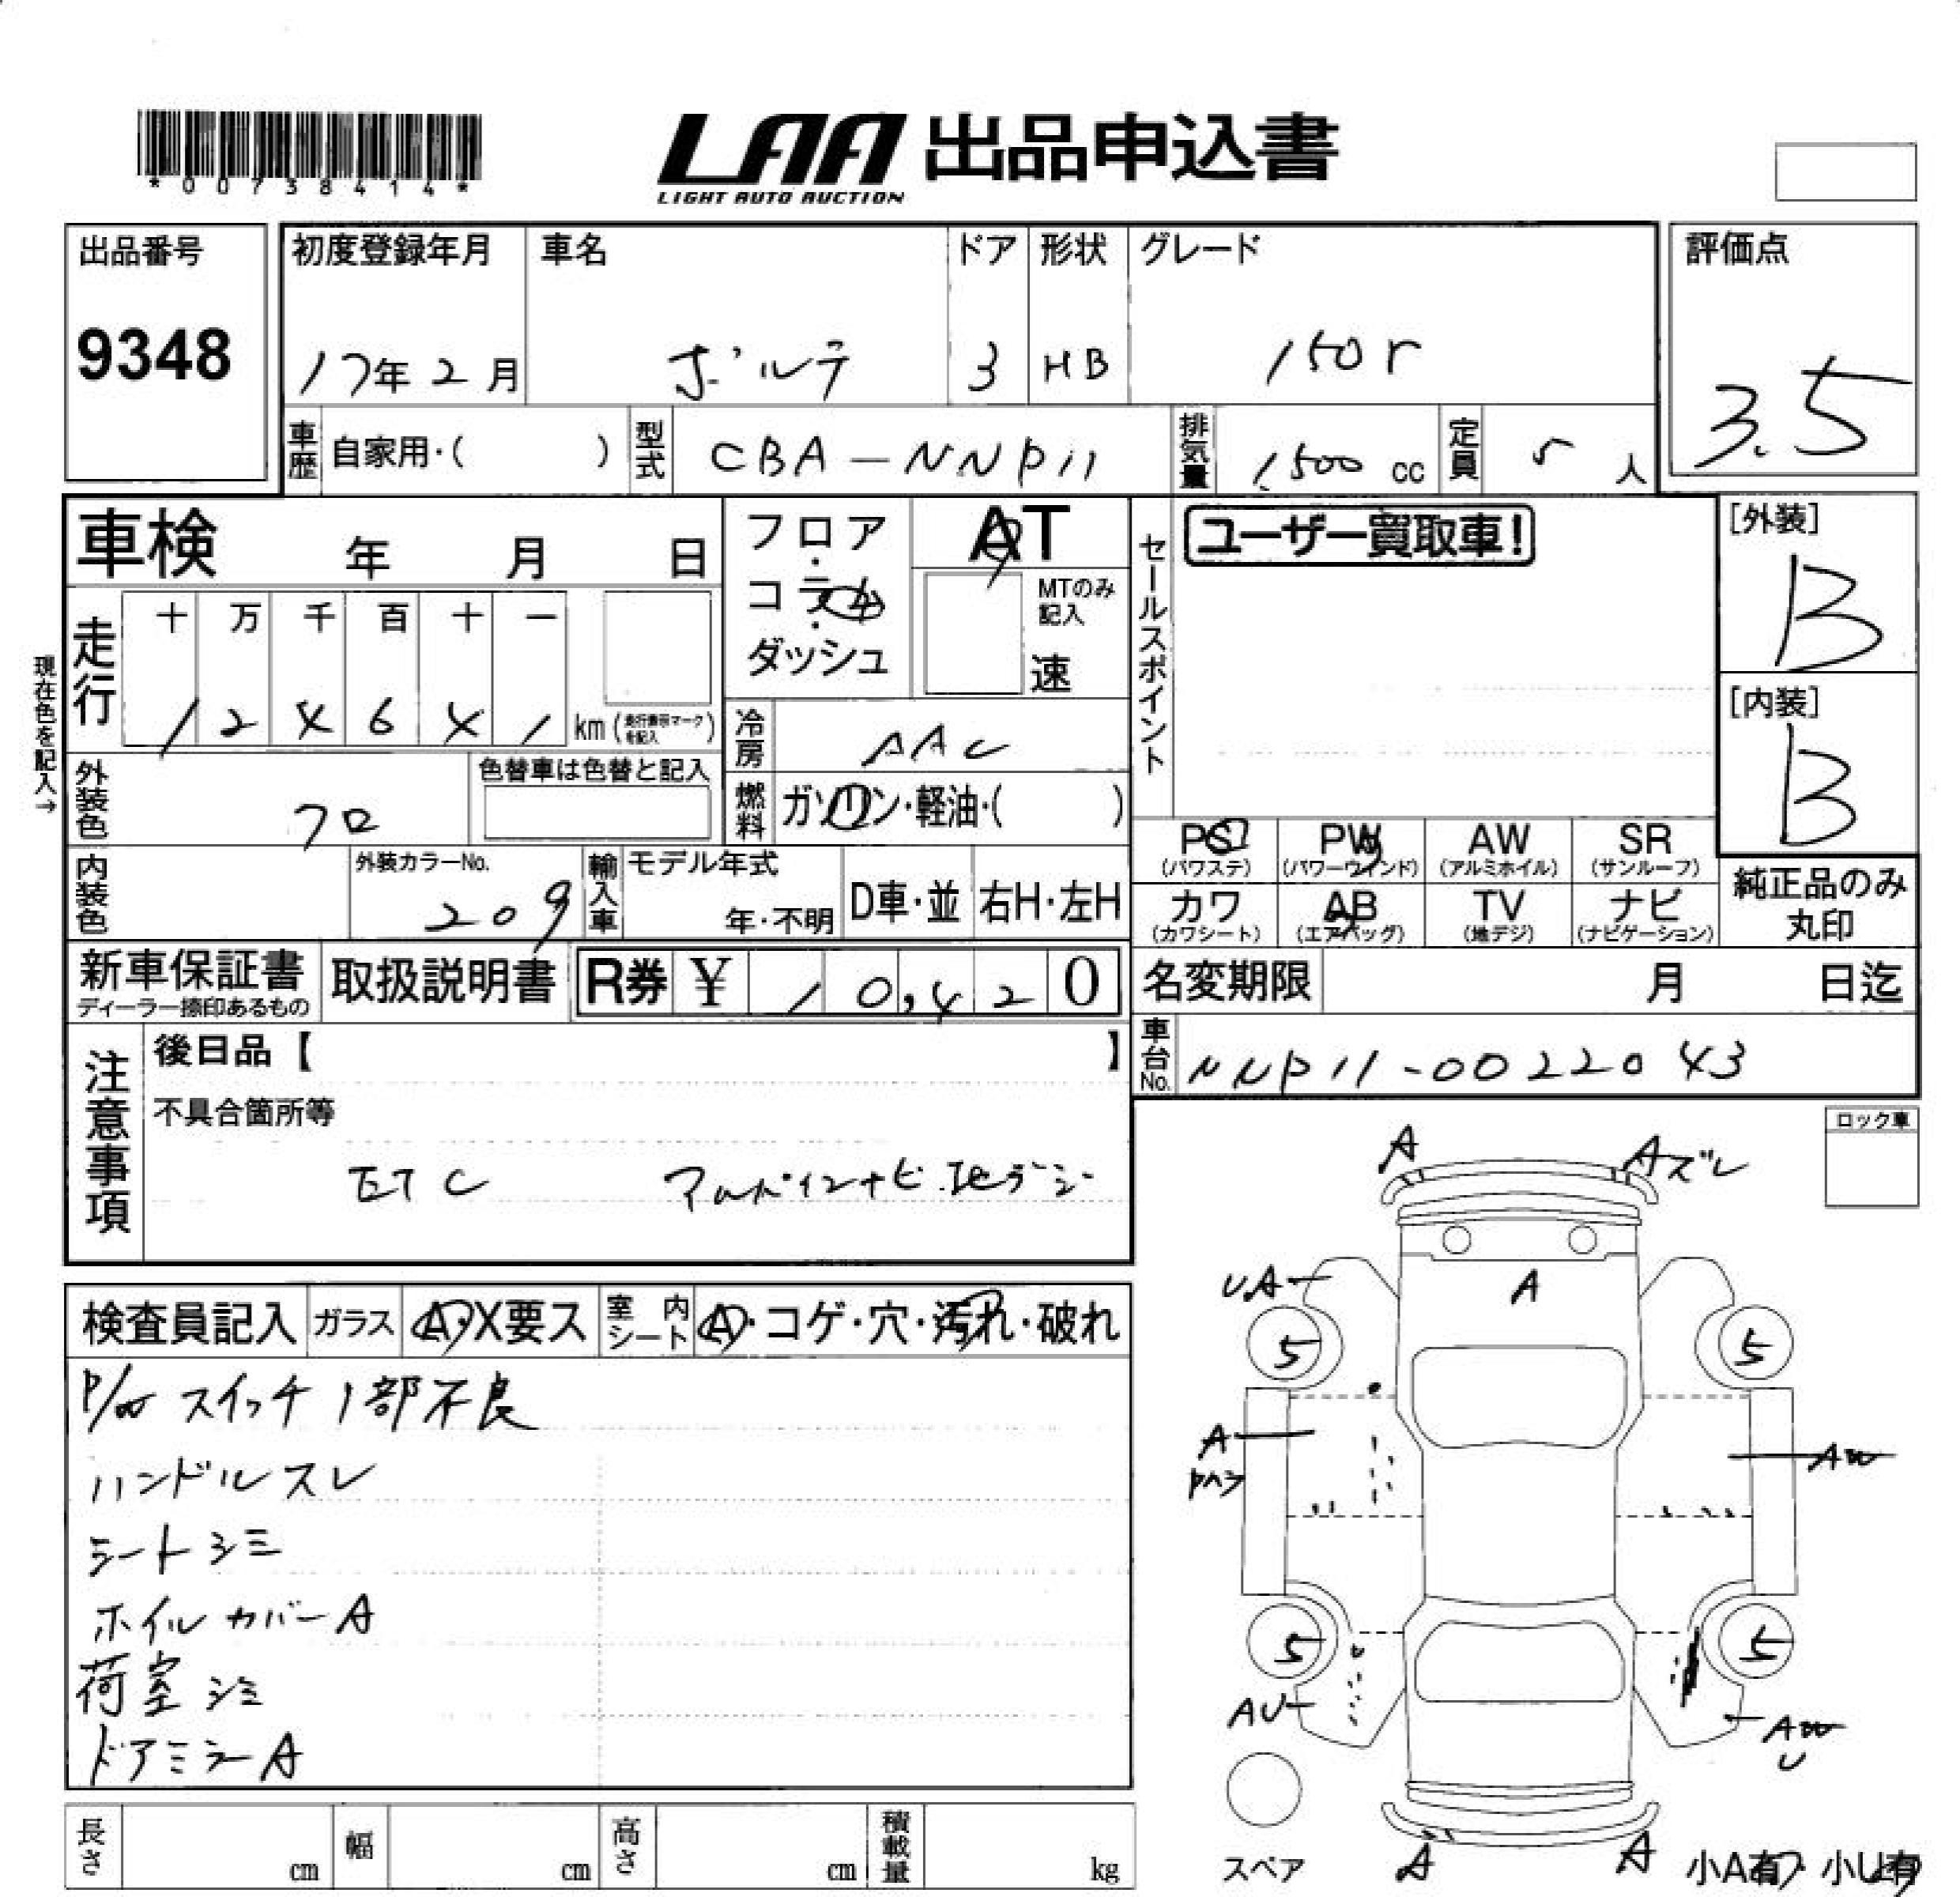 *00738414*
LAA 出品申込書
LIGHT AUTO AUCTION
出品番号 9348
初度登録年月 17年2月
車名 ポルテ
ドア 3
形状 HB
グレード 150r
評価点 3.5
車歴 自家用・( )
型式 CBA-NNP11
排気量 1,500 cc
定員 5 人
車検 年 月 日
フロア・コラム・ダッシュ
AT
MTのみ記入
速
セールスポイント
ユーザー買取車!
[外装] B
[内装] B
現在色を記入→
走行 十 万 千 百 十 一
1 2 4 6 4 1 km (走行表示マークを記入)
冷房 AAC
燃料 ガソリン・軽油・( )
外装色 クロ
色替車は色替と記入
内装色
外装カラーNo. 209
輸入車 モデル年式 年・不明
D車・並
右H・左H
PS (パワステ)
PW (パワーウインド)
AW (アルミホイル)
SR (サンルーフ)
カワ (カワシート)
AB (エアバッグ)
TV (地デジ)
ナビ (ナビゲーション)
純正品のみ丸印
新車保証書
ディーラー捺印あるもの
取扱説明書
R券 ¥ 10,420
名変期限 月 日迄
車台No. NNP11-0022043
注意事項
後日品【 】
不具合箇所等
ETC アルパインナビ.地デジ
ロック車
検査員記入
ガラス A・X要ス
室内シート A・コゲ・穴・汚れ・破れ
P/W スイッチ 1部不良
ハンドルスレ
シートシミ
ホイルカバーA
荷室シミ
ドアミラーA
A
Aズレ
UA
A
5
5
A
AW
5
5
AU
AW
U
A
A
スペア
小A有・小U有
長さ cm
幅 cm
高さ cm
積載量 kg